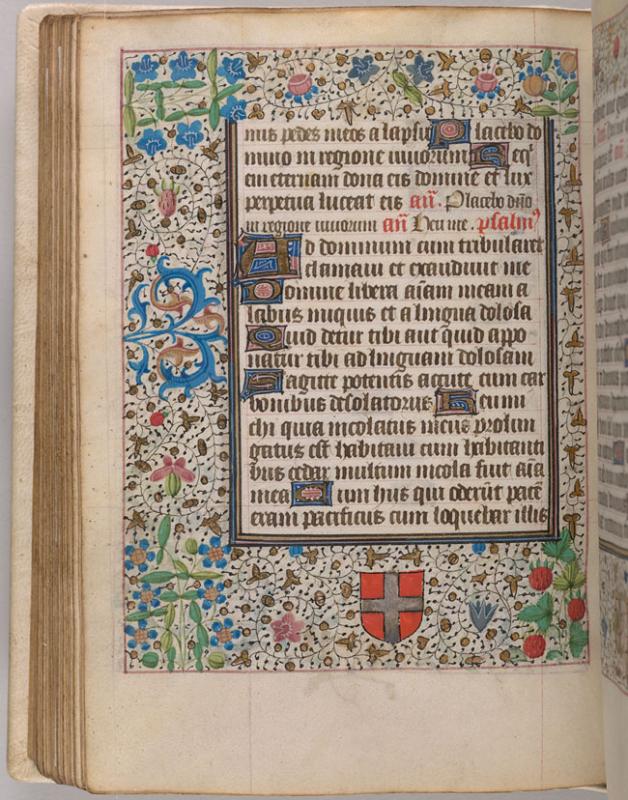 mus pedes meos a lapsu Placebo do
mino in regione uiuorum Req̄
em eternam dona eis domine et lux
perpetua luceat eis añ. Placebo dño
in regione uiuorum añ Heu me. psalm9
Ad dominum cum tribularer
clamaui et exaudiuit me
Domine libera aīam meam a
labiis iniquis et a lingua dolosa
Quid detur tibi aut quid appo
natur tibi ad linguam dolosam
Sagitte potentis accute cum car
bonibus desolatoriis Heu mi
chi quia incolatus meus prolon
gatus est habitaui cum habitanti
bus cedar multum incola fuit aīa
mea Cum hiis qui oderūt pacē
eram pacificus cum loquebar illis